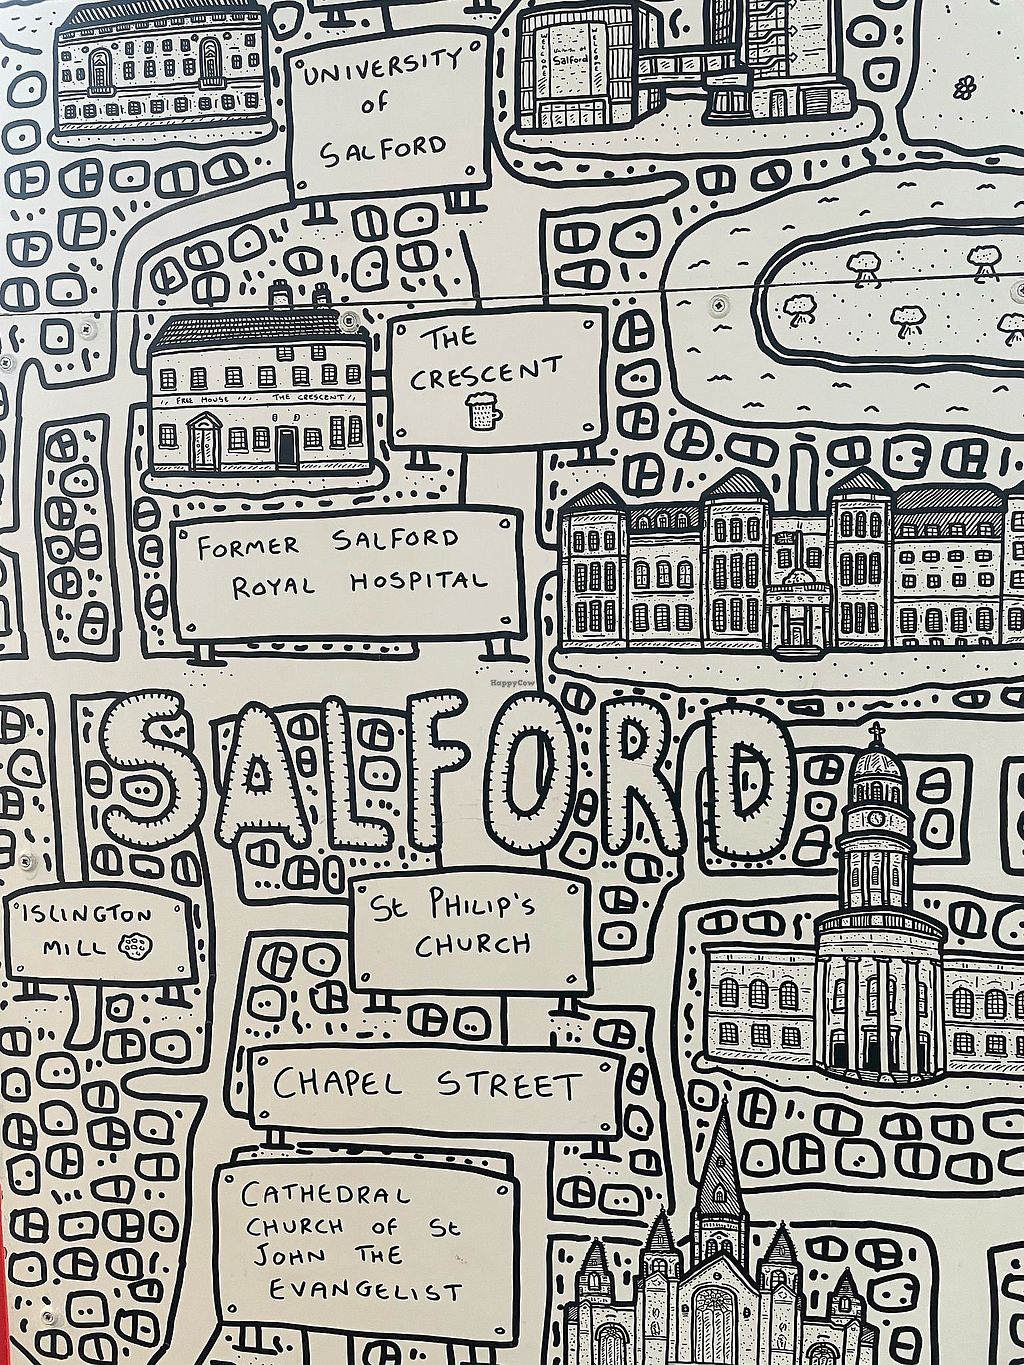 UNIVERSITY
of
SALFORD
Salford
THE
CRESCENT
FREE HOUSE
THE CRESCENT
FORMER SALFORD
ROYAL HOSPITAL
HappyCow
SALFORD
ISLINGTON
MILL
St PHILIP'S
CHURCH
CHAPEL STREET
CATHEDRAL
CHURCH OF St
JOHN THE
EVANGELIST